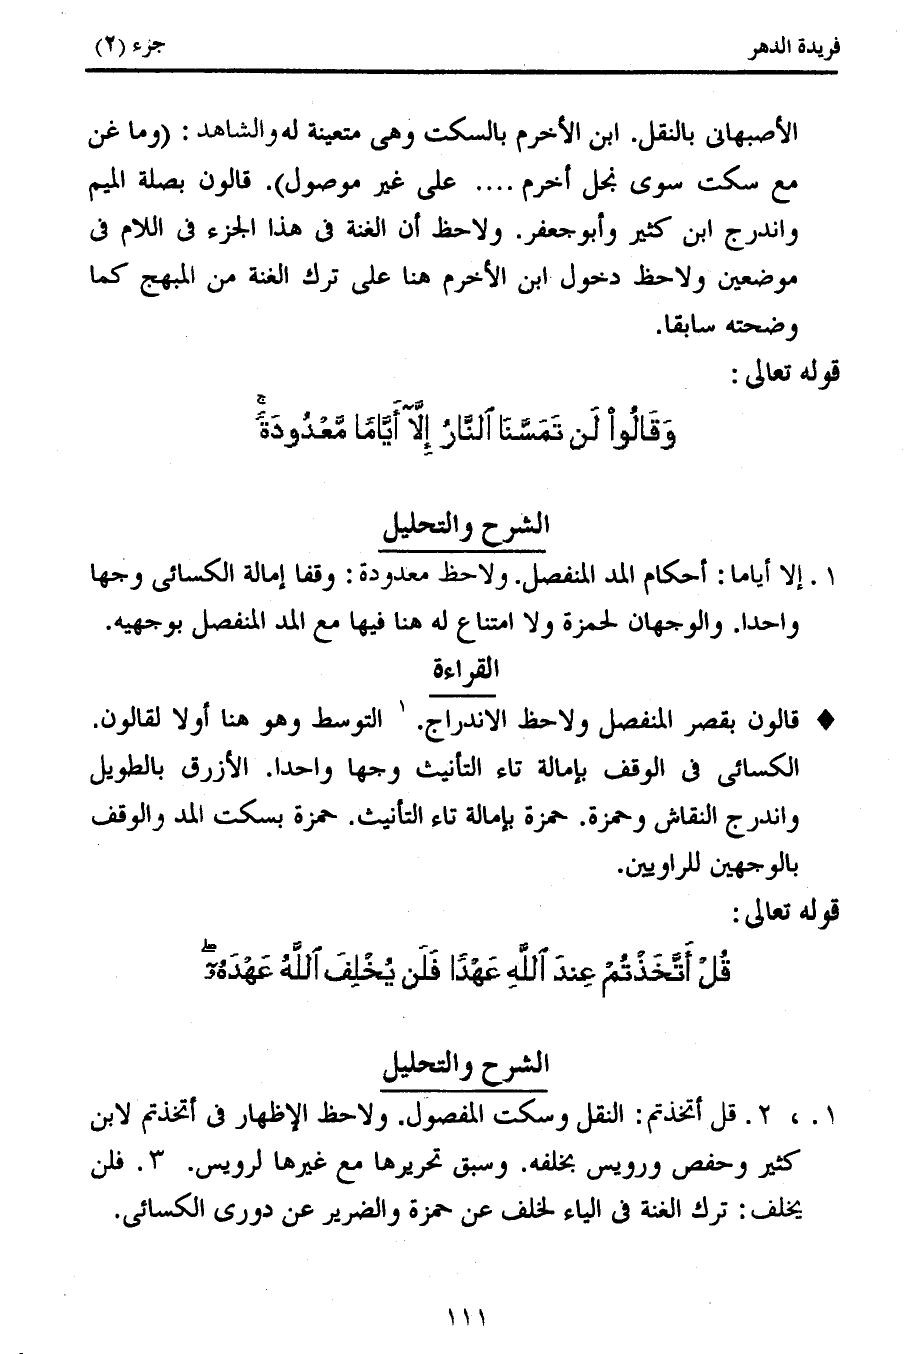 فريدة الدهر
جزء (٢)
الأصبهانى بالنقل. ابن الأخرم بالسكت وهى متعينة له والشاهد : (وما غن
مع سكت سوى نجل أخرم .... على غير موصول). قالون بصلة الميم
واندرج ابن كثير وأبوجعفر. ولاحظ أن الغنة فى هذا الجزء فى اللام فى
موضعين ولاحظ دخول ابن الأخرم هنا على ترك الغنة من المبهج كما
وضحته سابقا.
قوله تعالى :
وَقَالُواْ لَن تَمَسَّنَا ٱلنَّارُ إِلَّآ أَيَّامًا مَّعْدُودَةًۚ
الشرح والتحليل
١ . إلا أياما : أحكام المد المنفصل. ولاحظ معدودة : وقفا إمالة الكسائى وجها
واحدا. والوجهان لحمزة ولا امتناع له هنا فيها مع المد المنفصل بوجهيه.
القراءة
♦ قالون بقصر المنفصل ولاحظ الاندراج. ١ التوسط وهو هنا أولا لقالون.
الكسائى فى الوقف بإمالة تاء التأنيث وجها واحدا. الأزرق بالطويل
واندرج النقاش وحمزة. حمزة بإمالة تاء التأنيث. حمزة بسكت المد والوقف
بالوجهين للراويين.
قوله تعالى :
قُلْ أَتَّخَذْتُمْ عِندَ ٱللَّهِ عَهْدًا فَلَن يُخْلِفَ ٱللَّهُ عَهْدَهُۥٓۖ
الشرح والتحليل
١ . ، ٢ . قل أتخذتم : النقل وسكت المفصول. ولاحظ الإظهار فى أتخذتم لابن
كثير وحفص ورويس بخلفه. وسبق تحريرها مع غيرها لرويس. ٣ . فلن
يخلف : ترك الغنة فى الياء لخلف عن حمزة والضرير عن دورى الكسائى.
١١١